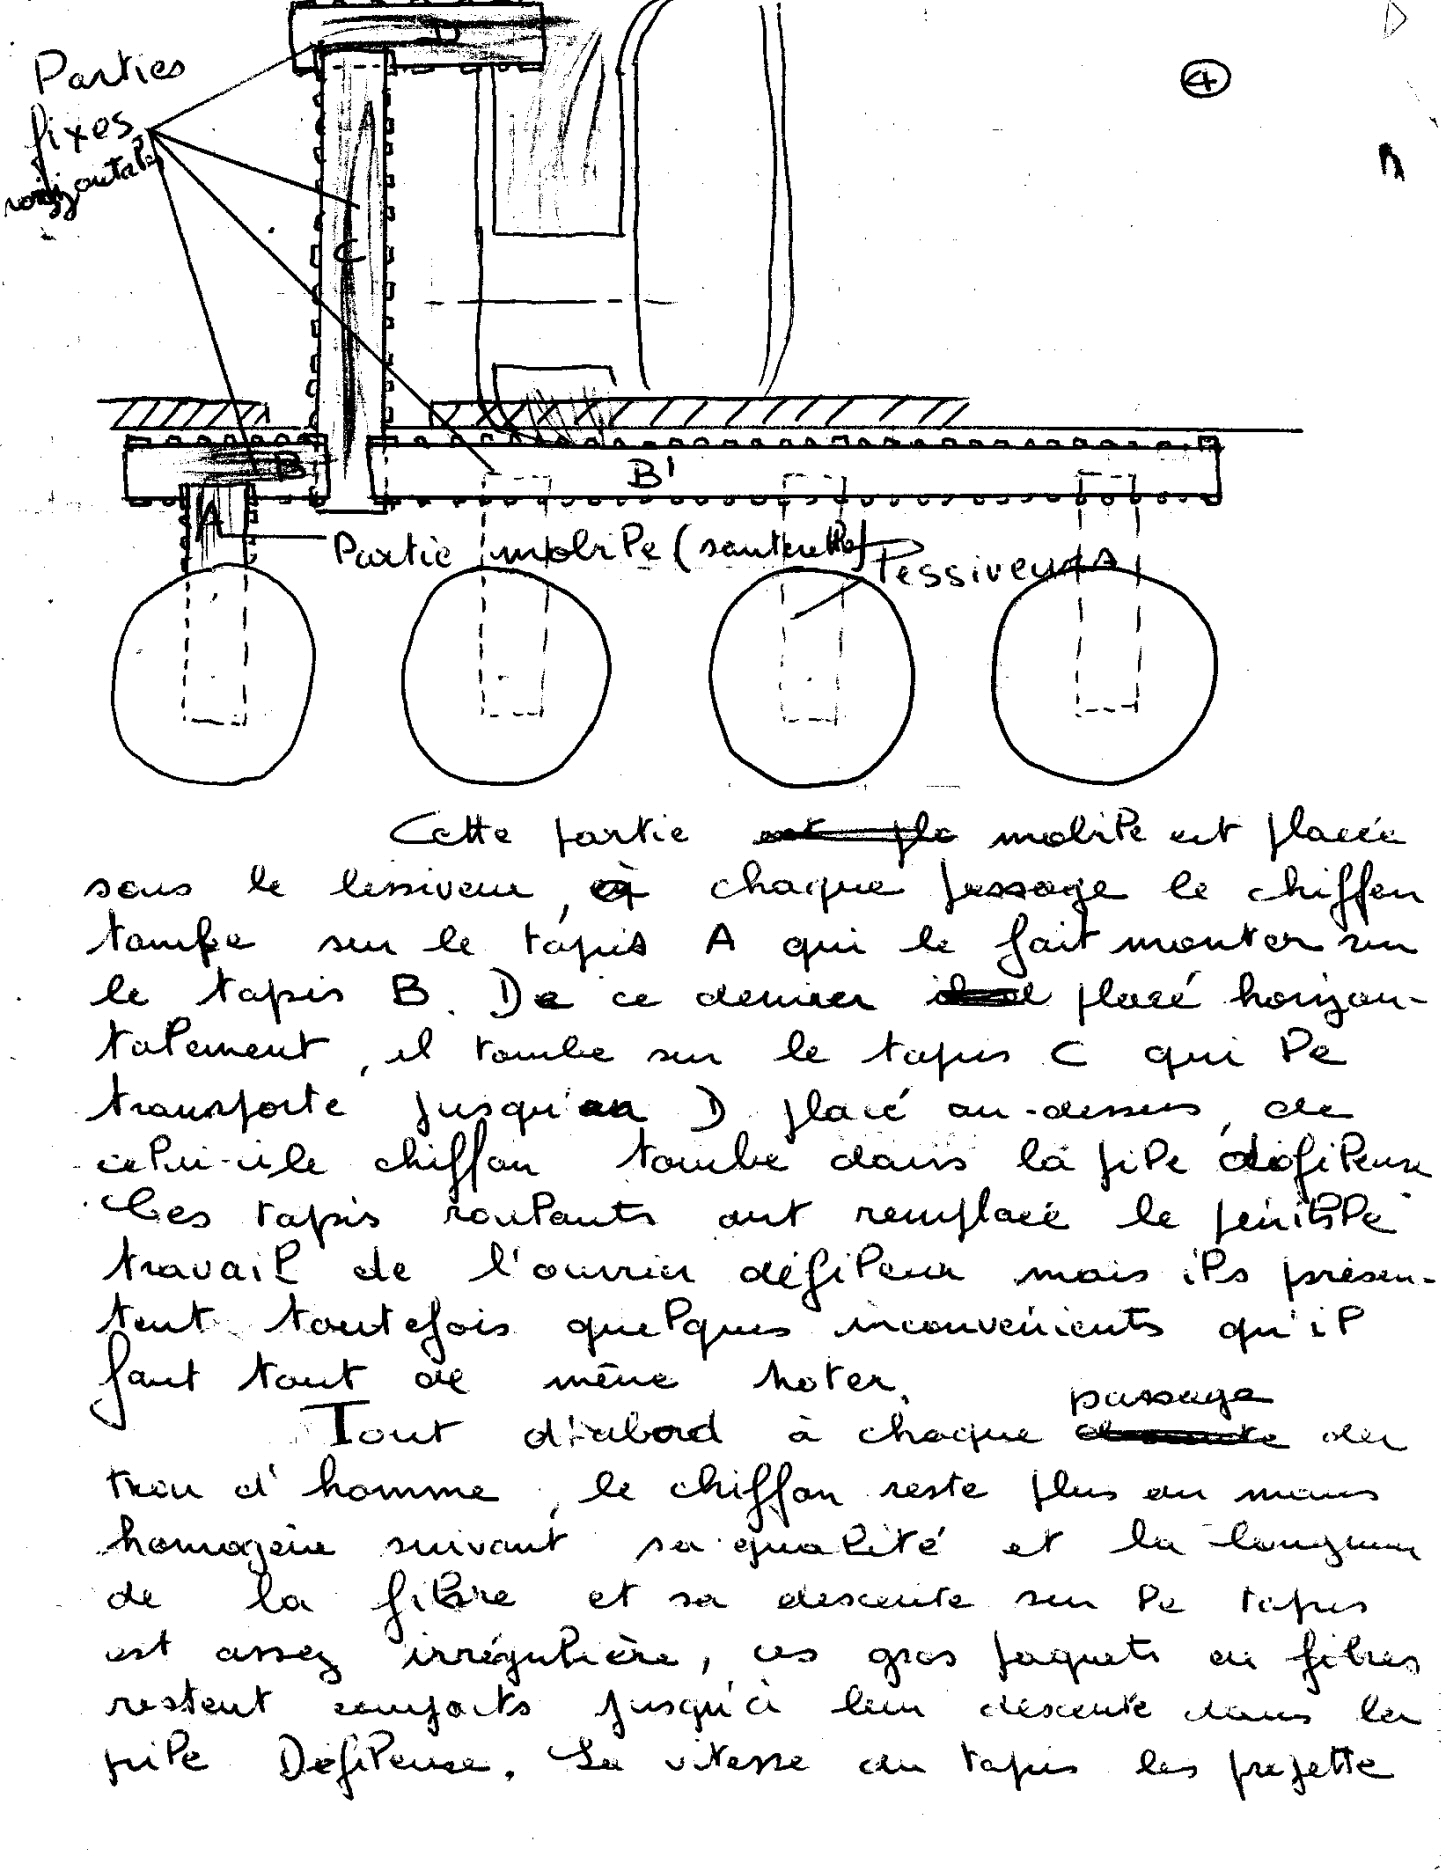 ④
D
Parties
fixes
horizontales
C
B
B'
A
Partie mobile (sauterelle)
lessiveurs
Cette partie mobile est placée
sous le lessiveur, à chaque passage le chiffon
tombe sur le tapis A qui le fait monter sur
le tapis B. De ce dernier placé horizon-
talement, il tombe sur le tapis C qui le
transporte jusqu'au D placé au-dessus, de
celui-ci le chiffon tombe dans la pile défileuse
Ces tapis roulants ont remplacé le pénible
travail de l'ouvrier défileur mais ils présen-
tent toutefois quelques inconvénients qu'il
faut tout de même noter.
passage
Tout d'abord à chaque du
trou d'homme, le chiffon reste plus ou moins
homogène suivant sa qualité et la longueur
de la fibre et sa descente sur le tapis
est assez irrégulière, ces gros paquets de fibres
restent compacts jusqu'à leur descente dans la
pile Défileuse. La vitesse du tapis les projette